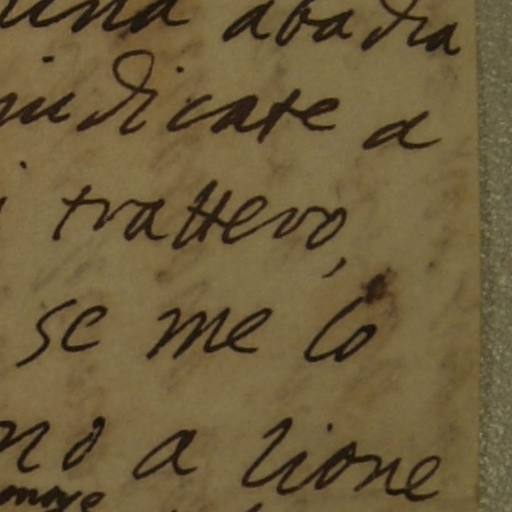 abadia
iudicate a
trattero,
se me lo
no a lione